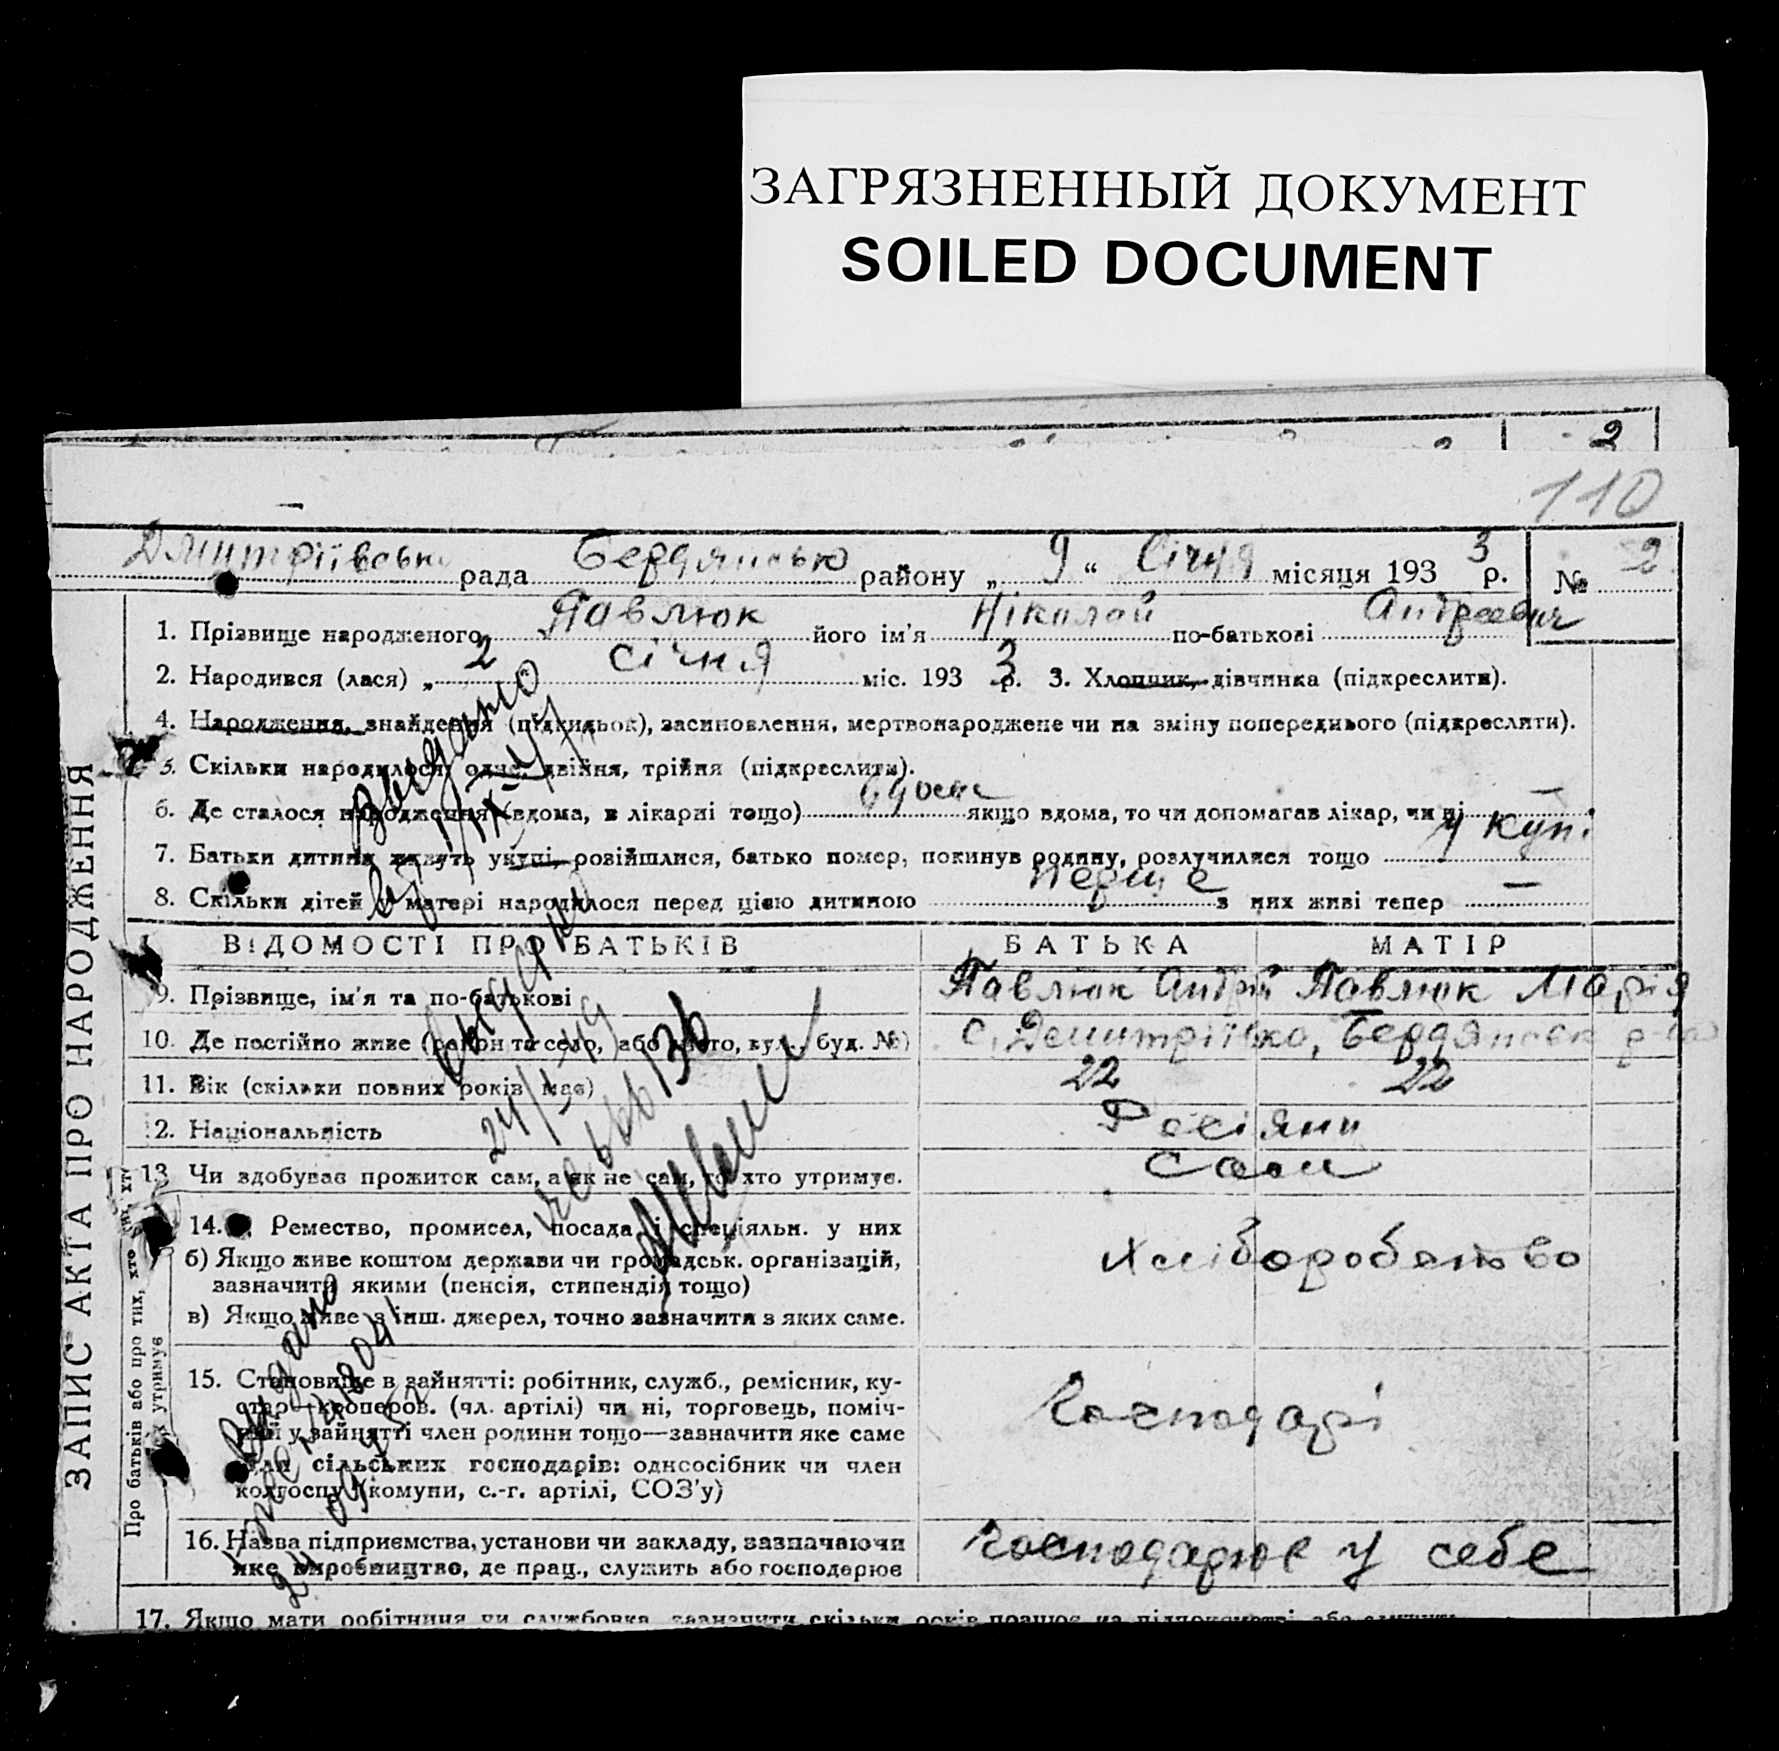 ЗАГРЯЗНЕННЫЙ ДОКУМЕНТ
SOILED DOCUMENT
2
110
Дмитріївсько рада Бердянсько району „ 9 “ Січня місяця 193 3 р. № 2
1. Прізвище народженого Павлюк його ім'я Ніколай по-батькові Андреевич
2. Народився (лася) „ 2 “ січня міс. 193 3 р. 3. Хлопчик, дівчинка (підкреслити).
4. Народження, знайдення (підкидьок), засиновлення, мертвонароджене чи на зміну попереднього (підкреслити).
5. Скільки народилося: одне, двійня, трійня (підкреслити).
6. Де сталося народження (вдома, в лікарні тощо) вдома якщо вдома, то чи допомагав лікар, чи ні —
7. Батьки дитини живуть укупі, розійшлися, батько помер, покинув родину, розлучилися тощо у куп.
8. Скільки дітей у матері народилося перед цією дитиною перше з них живі тепер —
ВІДОМОСТІ ПРО БАТЬКІВ БАТЬКА МАТІР
9. Прізвище, ім'я та по-батькові Павлюк Андрій Павлюк Марія
10. Де постійно живе (район та село, або місто, вул., буд. №) с. Дмитрівка, Бердянськ р-на
11. Вік (скільки повних років має) 22 22
12. Національність Росіяни
13. Чи здобуває прожиток сам, а як не сам, то хто утримує. Сами
14. Ремество, промисел, посада і спеціяльн. у них
б) Якщо живе коштом держави чи громадськ. організацій,
зазначити якими (пенсія, стипендія тощо)
в) Якщо живе з інш. джерел, точно зазначити з яких саме.
хліборобство
15. Становище в зайнятті: робітник, служб., ремісник, ку-
стар—кооперов. (чл. артілі) чи ні, торговець, поміч-
ний у зайнятті член родини тощо—зазначити яке саме
Для сільських господарів: одноосібник чи член
колгоспу (комуни, с.-г. артілі, СОЗ'у)
Господарі
16. Назва підприємства, установи чи закладу, зазначаючи
яке виробництво, де прац., служить або господарює
господарює у себе
17. Якщо мати робітниця чи службовка, зазначити скільки років працює на підприємстві або
ЗАПИС АКТА ПРО НАРОДЖЕННЯ
Про батьків або про тих, хто
їх утримує
Видано
Видано